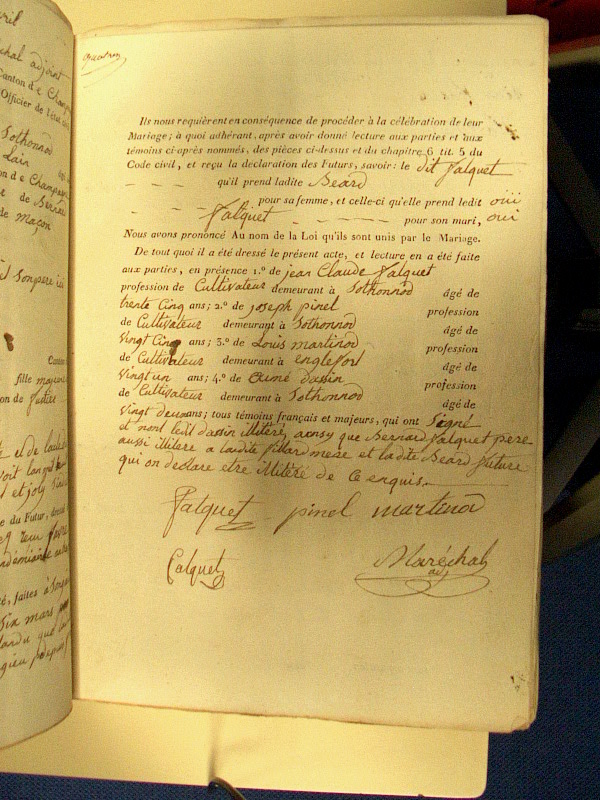 Ils nous requièrent en conséquence de procéder à la célébration de leur
Mariage; à quoi adhérant, après avoir donné lecture aux parties et aux
témoins ci-après nommés, des pièces ci-dessus et du chapitre 6 tit. 5 du
Code civil, et reçu la déclaration des Futurs, savoir: le dit falquet
qu'il prend ladite Béard
pour sa femme, et celle-ci qu'elle prend ledit oui
falquet pour son mari, oui
Nous avons prononcé Au nom de la Loi qu'ils sont unis par le Mariage.
De tout quoi il a été dressé le présent acte, et lecture en a été faite
aux parties, en présence 1.º de jean Claude falquet
profession de Cultivateur demeurant à Sothonnod âgé de
trente Cinq ans; 2.º de joseph pinel profession
de Cultivateur demeurant à Sothonnod âgé de
vingt Cinq ans; 3.º de Louis martinod profession
de Cultivateur demeurant à englefort âgé de
vingt un ans; 4.º de Aimé dassin profession
de Cultivateur demeurant à Sothonnod âgé de
vingt deux ans; tous témoins français et majeurs, qui ont Signé
et non ledit dassin illitéré, ainsy que Bernard falquet père
aussi illitéré a ladite fillard mere et ladite Béard future
qui on declaré etre illitéré de Ce enquis.
falquet pinel martinod
Calquet Maréchal
adj